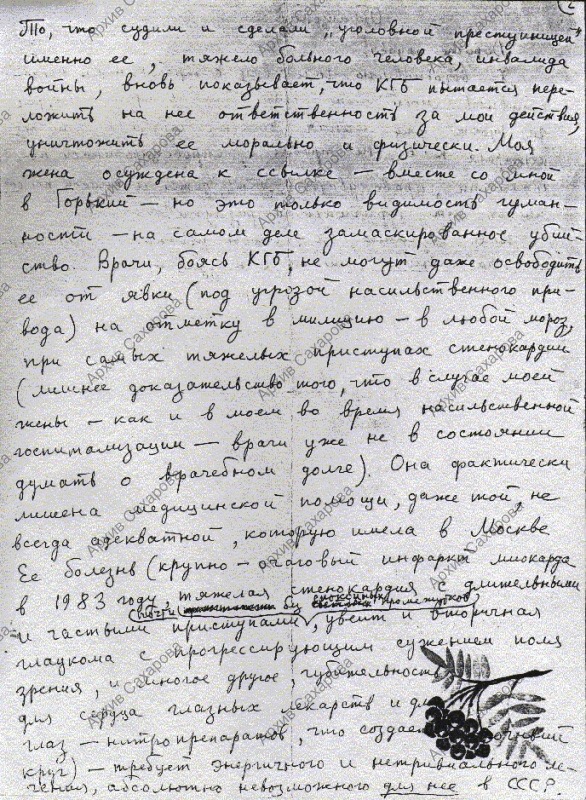 2
То, что судили и сделали „уголовной преступницей"
именно ее, тяжело больного человека, инвалида
войны, вновь показывает, что КГБ пытается пере-
ложить на нее ответственность за мои действия,
уничтожить ее морально и физически. Моя
жена осуждена к ссылке — вместе со мной
в Горький — но это только видимость гуман-
ности — на самом деле замаскированное убий-
ство. Врачи, боясь КГБ, не могут даже освободить
ее от явки (под угрозой насильственного при-
вода) на отметку в милицию — в любой мороз,
при самых тяжелых приступах стенокардии
(лишнее доказательство того, что в случае моей
жены — как и в моем во время насильственной
госпитализации — врачи уже не в состоянии
думать о врачебном долге). Она фактически
лишена медицинской помощи, даже той, не
всегда адекватной, которую имела в Москве
Ее болезнь (крупно-очаговый инфаркт миокарда
в 1983 году, тяжелая стенокардия с длительными
спокойных промежутков
и частыми приступами, увеит и вторичная
глаукома с прогрессирующим сужением поля
зрения, и многое другое, губительность
для сердца глазных лекарств и для
глаз — нитропрепаратов, что создает
круг) — требует энергичного и нетривиального ле-
чения, абсолютно невозможного для нее в СССР.
Архив Сахарова